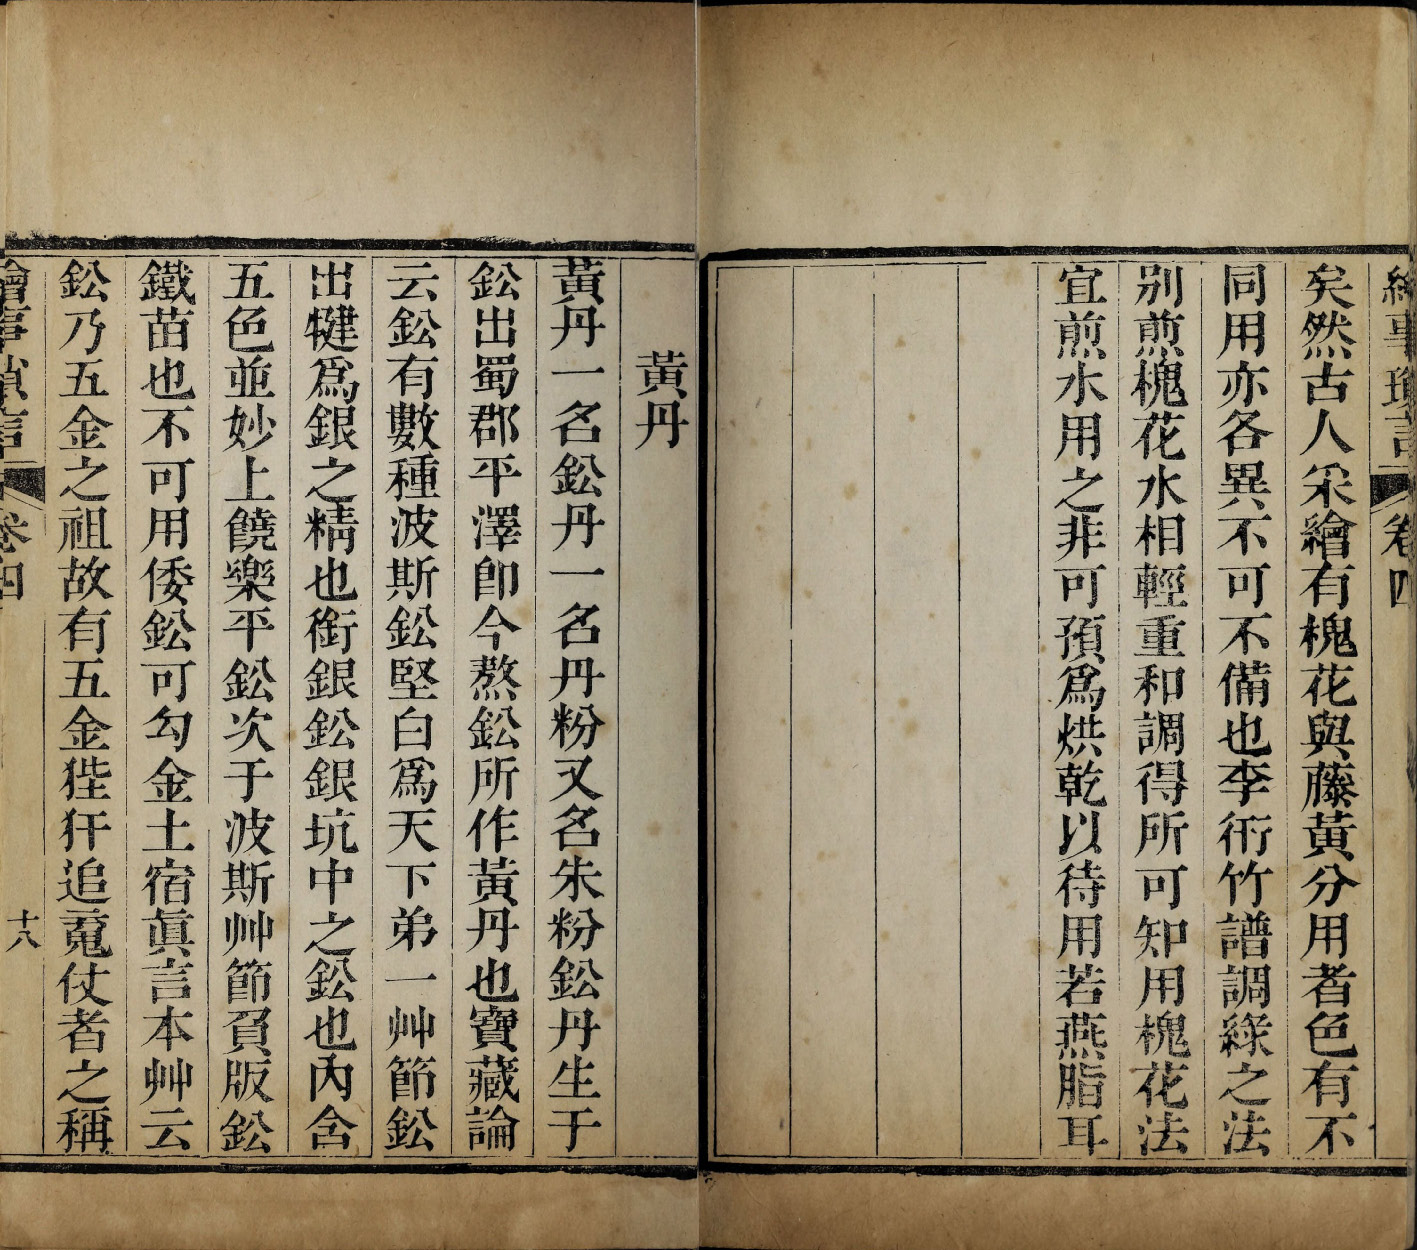 繪事瑣言 卷四
矣然古人采繪有槐花與藤黃分用者色有不
同用亦各異不可不備也李衎竹譜調綠之法
别煎槐花水相輕重和調得所可知用槐花法
宜煎水用之非可預爲烘乾以待用若燕脂耳
黃丹
黃丹一名鈆丹一名丹粉又名朱粉鈆丹生于
鈆出蜀郡平澤卽今熬鈆所作黃丹也寶藏論
云鈆有數種波斯鈆堅白爲天下弟一艸節鈆
出犍爲銀之精也銜銀鈆銀坑中之鈆也內含
五色並妙上饒樂平鈆次于波斯艸節負版鈆
鐵苗也不可用倭鈆可勾金土宿眞言本艸云
鈆乃五金之祖故有五金狴犴追䰟仗者之稱
繪事瑣言 卷四 十八